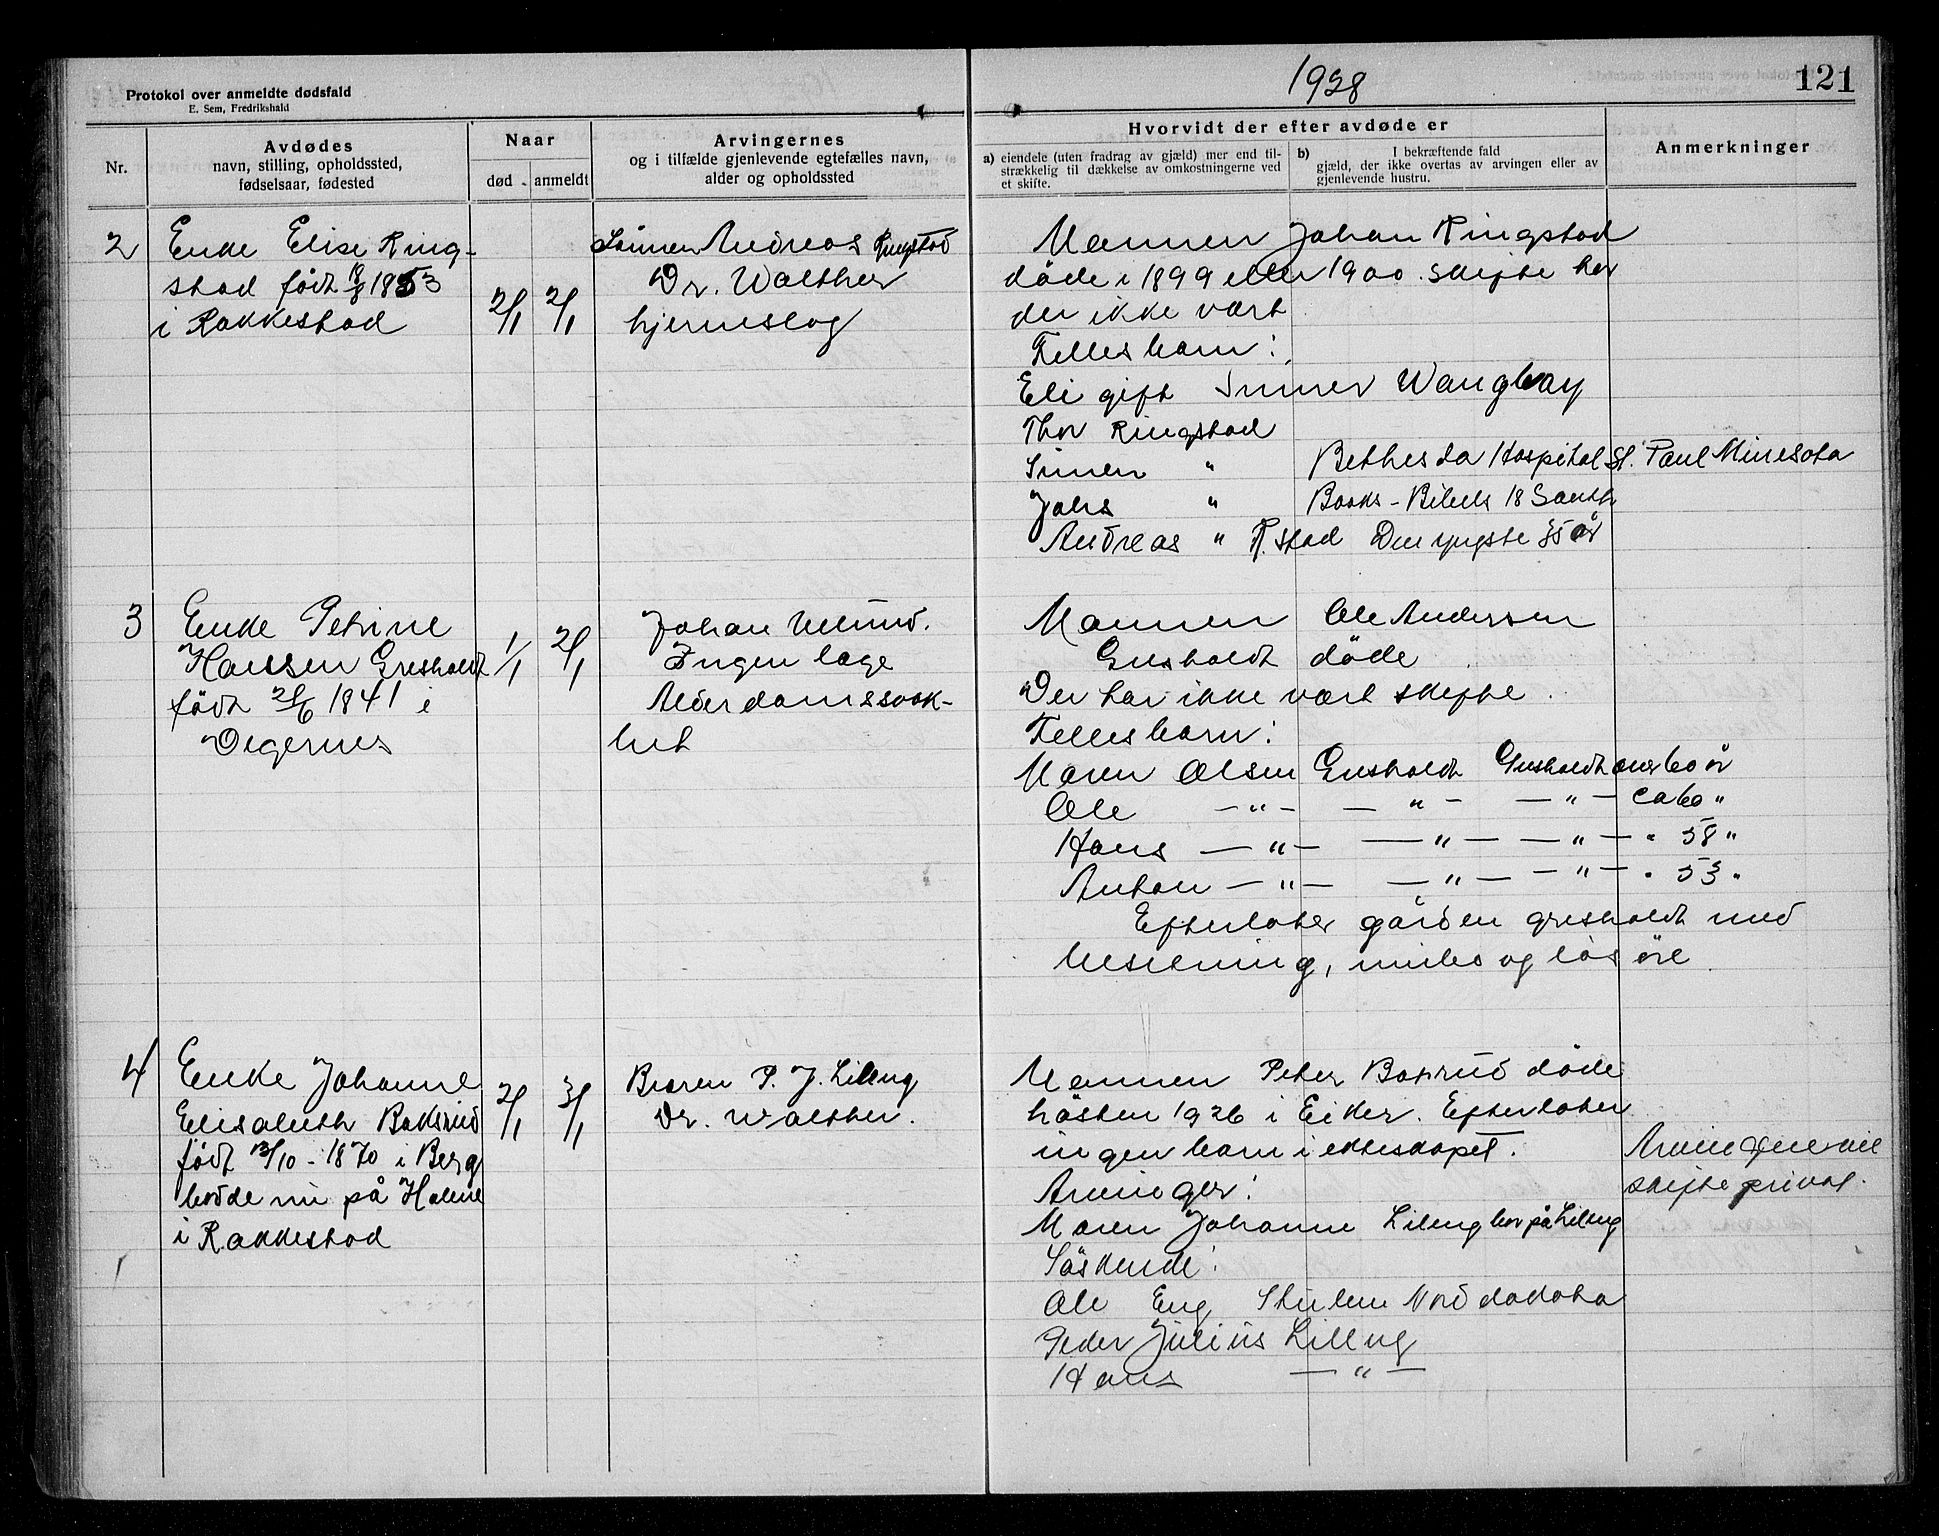 Protokol over anmeldte dødsfald
E. Sem, Fredrikshald
1928
121
Nr.
Avdødes
navn, stilling, opholdssted,
fødselsaar, fødested
Naar
død
anmeldt
Arvingernes
og i tilfælde gjenlevende egtefælles navn,
alder og opholdssted
Hvorvidt der efter avdøde er
a) eiendele (uten fradrag av gjæld) mer end til-
strækkelig til dækkelse av omkostningerne ved
et skifte.
b) I bekræftende fald
gjæld, der ikke overtas av arvingen eller av
gjenlevende hustru.
Anmerkninger
2
Enke Elise Ring-
stad født 18/8 1853
i Rakkestad
2/1
2/1
Sönnen Andreas Ringstad
Dr. Walther
hjerneslag
Mannen Johan Ringstad
döde i 1899 eller 1900. Skifte har
der ikke vært
Fellesbarn:
Eli gift
Thor Ringstad
Simen "
Bethesda Hospital St. Paul Minesota
Johs "
18 South
Andreas " R.stad Den yngste 35 år
3
Enke Petrine
Hansen Gresholdt
født 2/6 1841 i
Degernes
1/1
2/1
Johan
Ingen læge
Alderdomssvak-
het
Mannen Ole Andersen
Gresholdt döde
Der har ikke vært skifte.
Fellesbarn:
Maren Olsen Gresholdt Gresholdt over 60 år
Ole — " — — " — — " — ca 60 "
Hans — " — — " — — " — " 58 "
Anton — " — — " — — " — " 53 "
Efterlater gården gresholdt med
besetning, innbo og lösöre
4
Enke Johanne
Elisabeth Boksrud
født 13/10 - 1870 i Berg
bodde nu på Holene
i Rakkestad
2/1
3/1
Broren P. J. Lilleng
Dr. Walther.
Mannen Peter Boksrud döde
hösten 1926 i Eiker. Efterlater
ingen barn i ekteskapet.
Arvinger:
Arvingene vil
skifte privat.
Maren Johanne Lileng bor på Lilleng
Söskende:
Ole Eng Nord dakota
Peder Julius Lilleng
Hans — " —